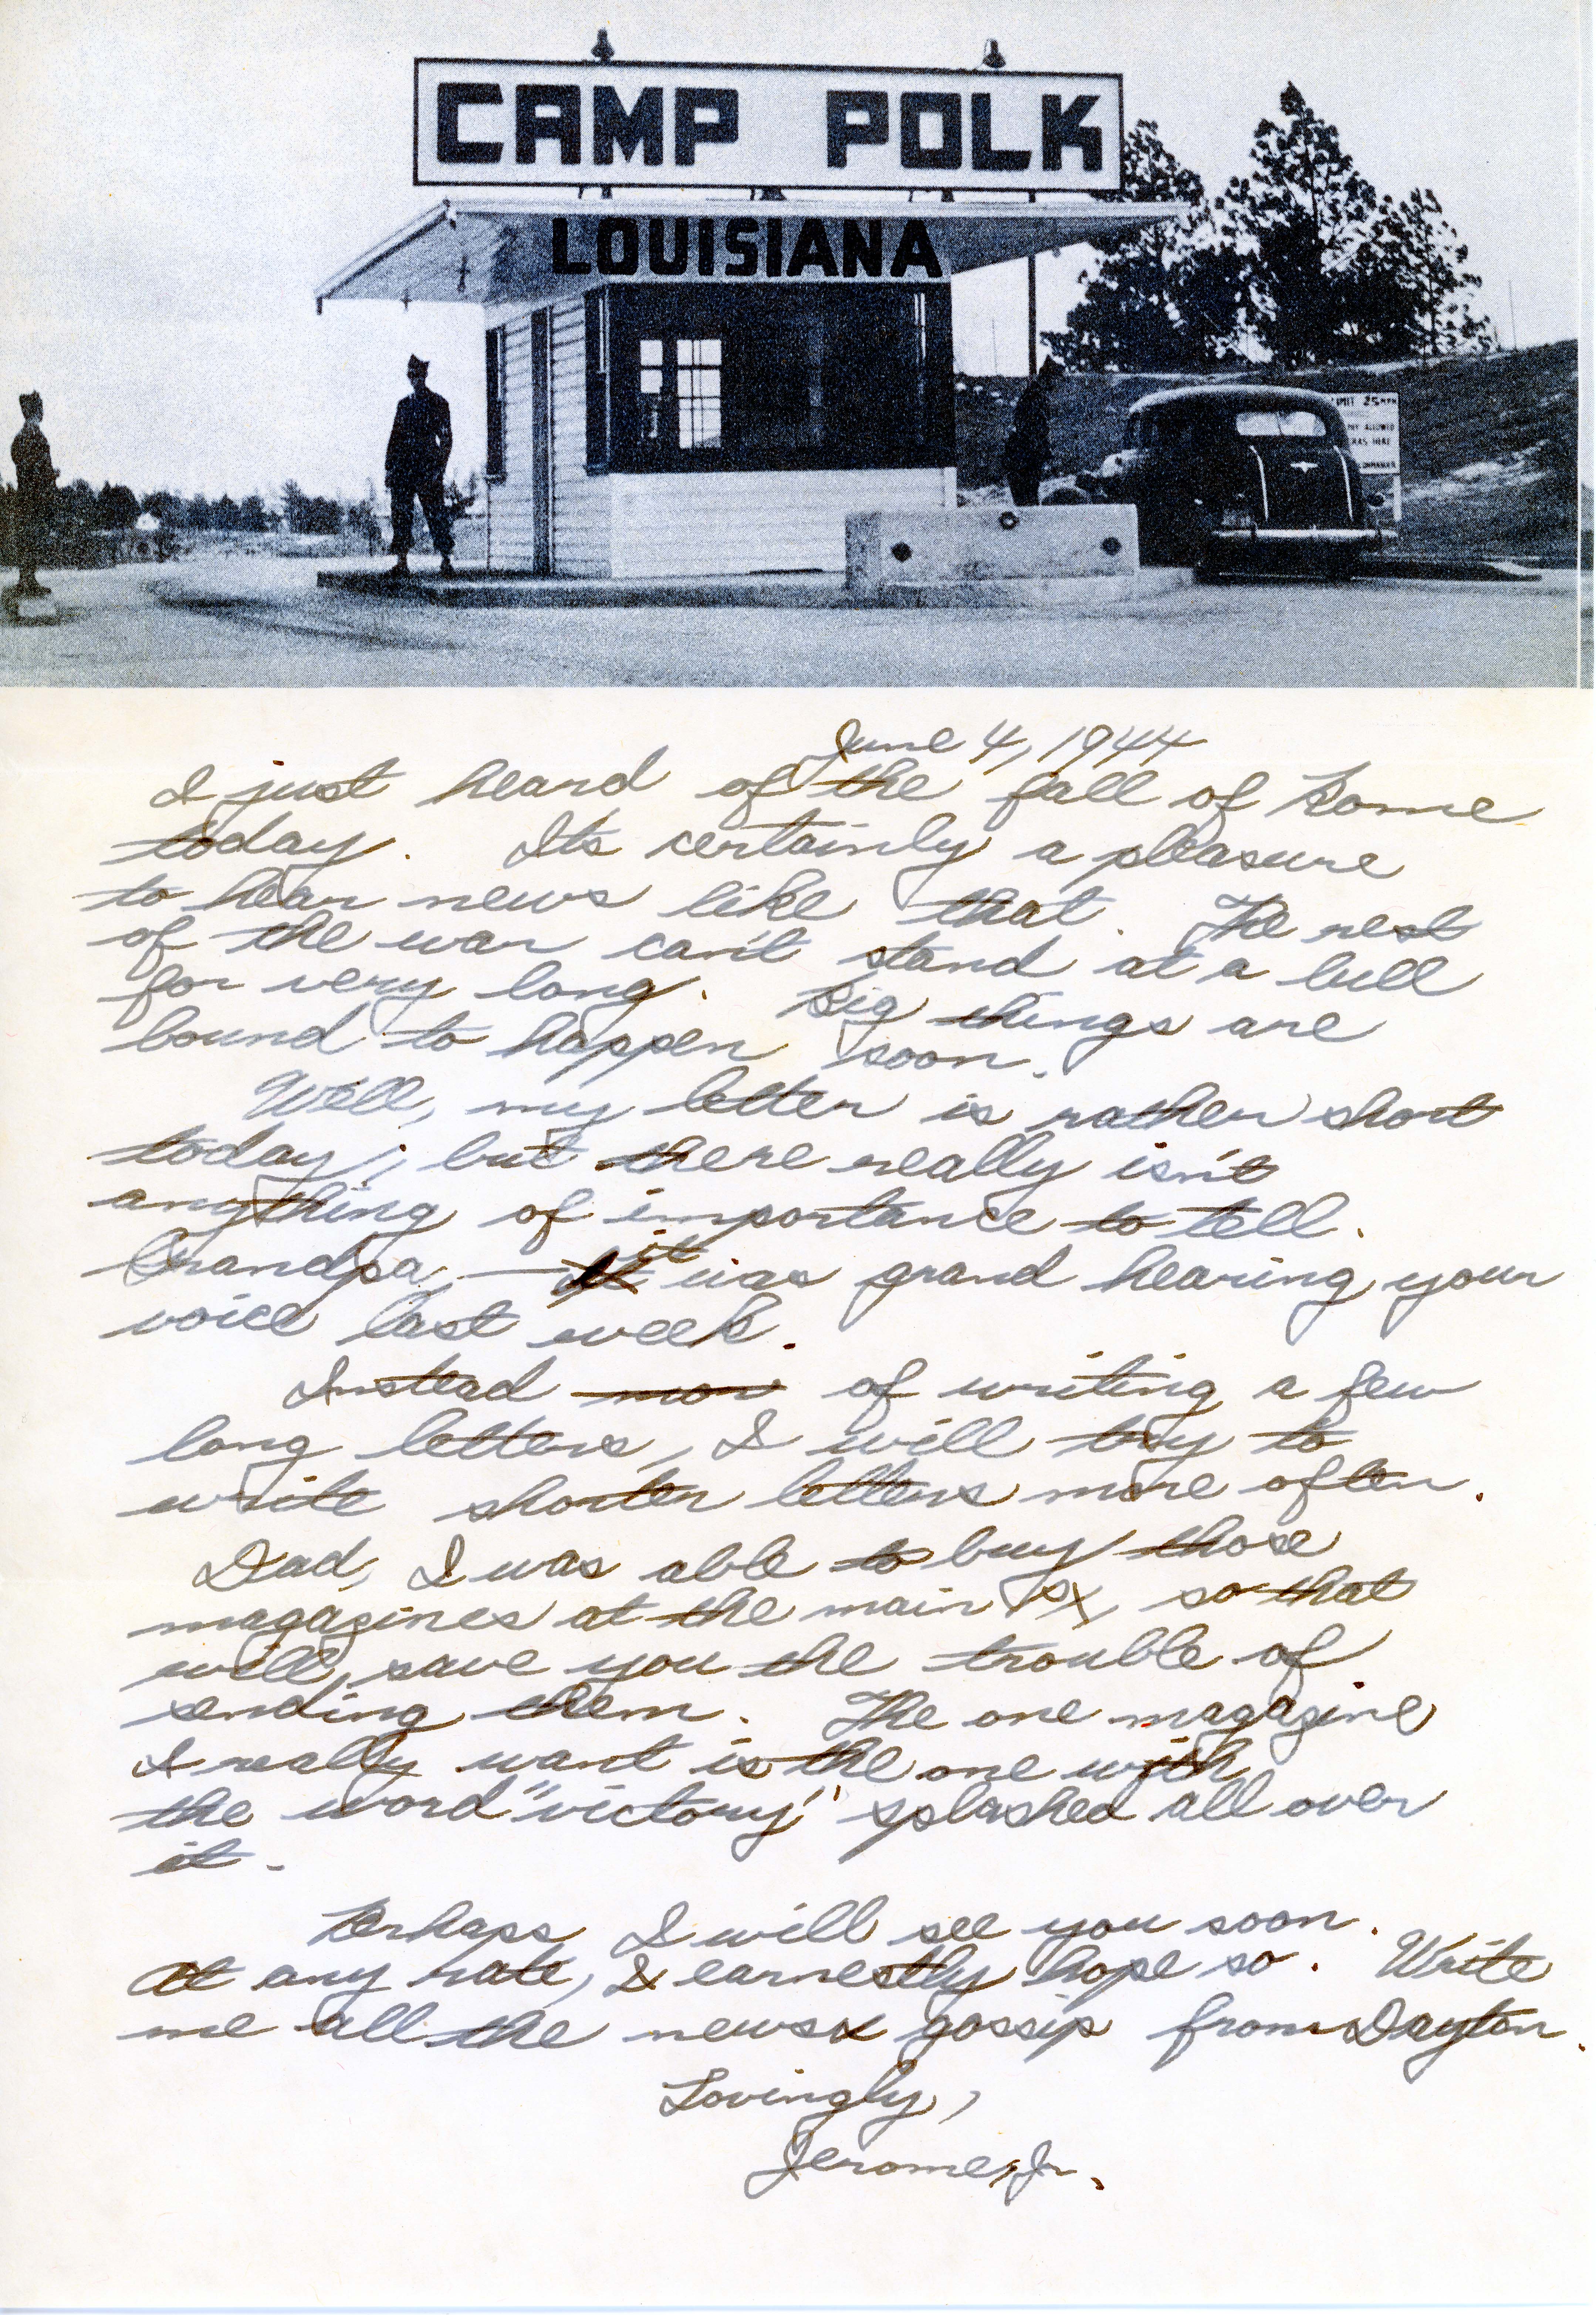 CAMP POLK
LOUISIANA
LIMIT 25 MPH
ALLOWED
HERE
COMMANDER
June 4, 1944
I just heard of the fall of Rome
today. Its certainly a pleasure
to hear news like that. The rest
of the war can't stand at a lull
for very long. Big things are
bound to happen soon.
Well, my letter is rather short
today; but there really isn't
anything of importance to tell.
Grandpa, — it was grand hearing your
voice last week.
Instead of writing a few
long letters, I will try to
write shorter letters more often.
Dad, I was able to buy those
magazines at the main PX, so that
will save you the trouble of
sending them. The one magazine
I really want is the one with
the word "victory" splashed all over
it.
Perhaps I will see you soon.
At any rate, I earnestly hope so. Write
me all the news & gossip from Dayton.
Lovingly,
Jerome, Jr.